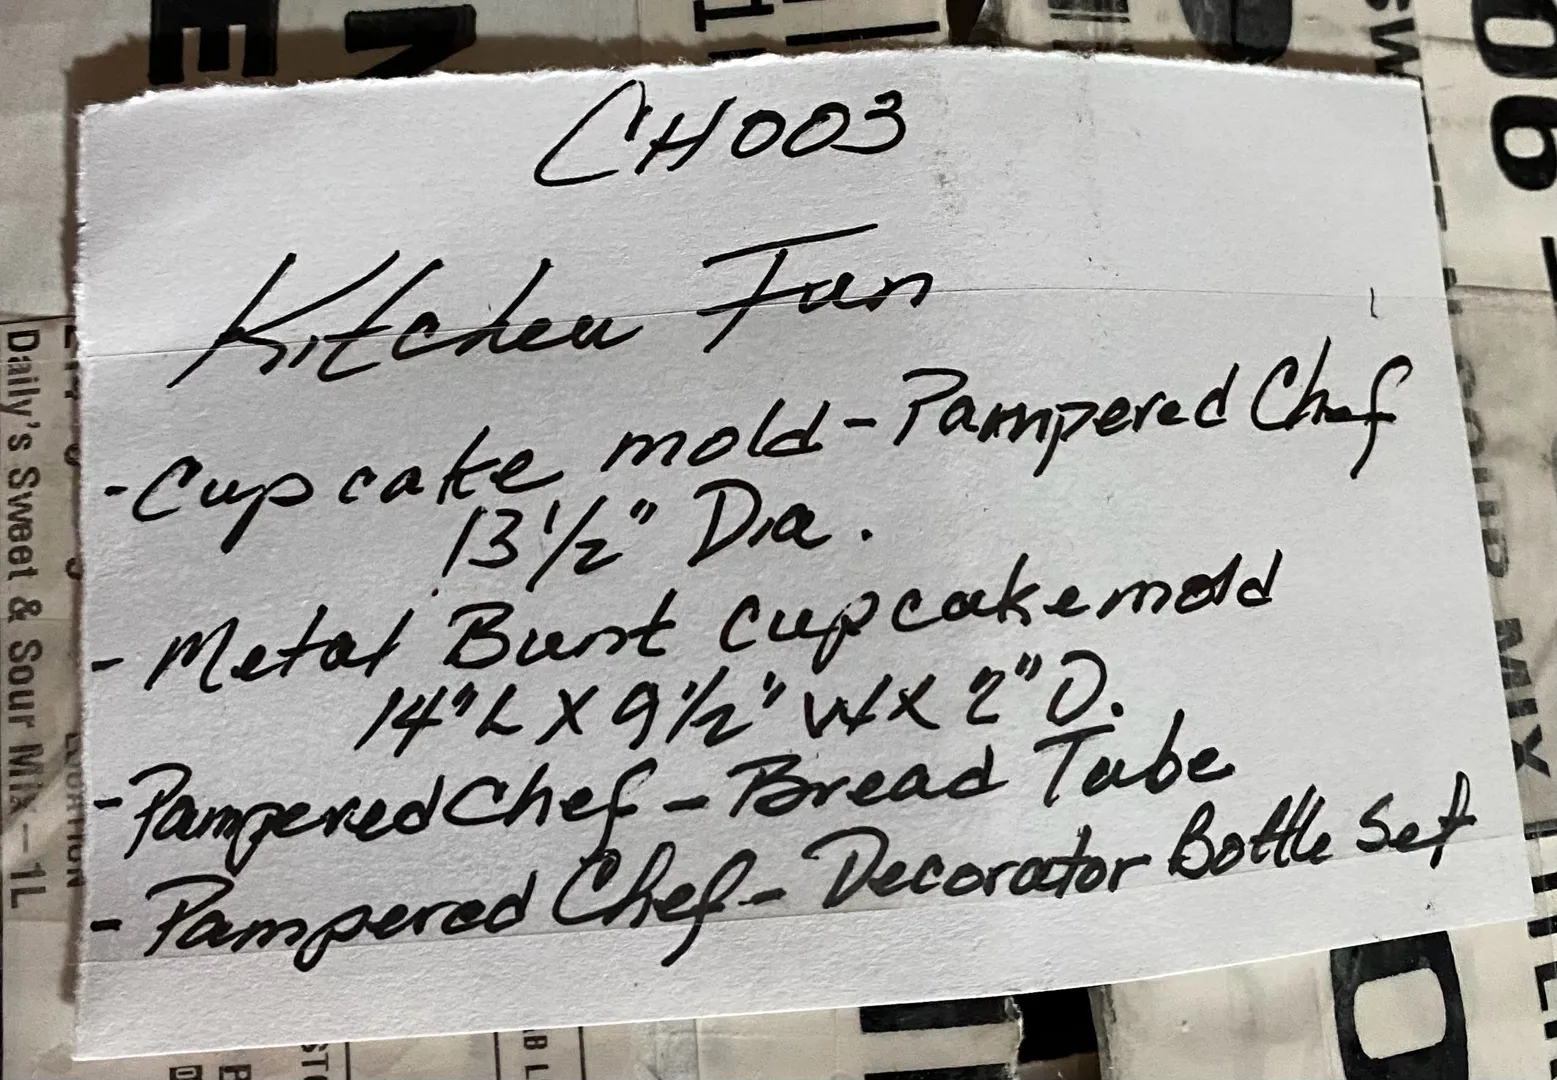 CH003
Kitchen Fun
- Cupcake mold - Pampered Chef
13 1/2" Dia.
- Metal Bunt cupcake mold
14" L X 9 1/2" W X 2" D.
- Pampered Chef - Bread Tube
- Pampered Chef - Decorator Bottle Set
Daily's Sweet & Sour Mix - 1L